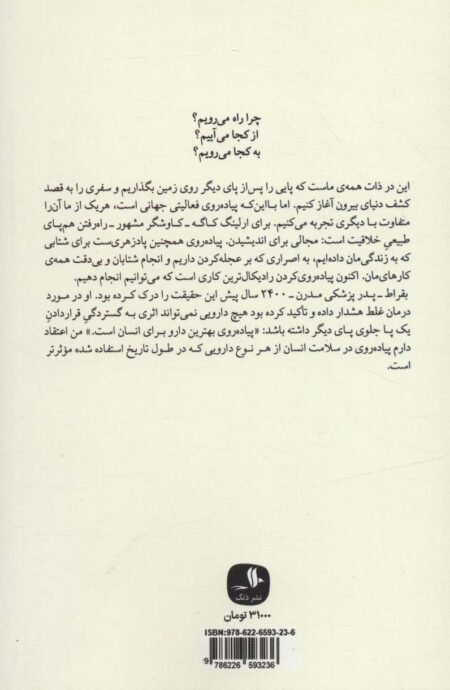 چرا راه می‌رویم؟
از کجا می‌آییم؟
به کجا می‌رویم؟
این در ذات همه‌ی ماست که پایی را پس‌از پای دیگر روی زمین بگذاریم و سفری را به قصد
کشف دنیای بیرون آغاز کنیم. اما بااین‌که پیاده‌روی فعالیتی جهانی است، هریک از ما آن‌را
متفاوت با دیگری تجربه می‌کنیم. برای ارلینگ کاگـه ـ کـاوشگر مشهور ـ راه‌رفتن هم‌پای
طبیعیِ خلاقیت است: مجالی برای اندیشیدن. پیاده‌روی همچنین پادزهری‌ست برای شتابی
که به زندگی‌مان داده‌ایم، به اصراری که بر عجله‌کردن داریم و انجام شتابان و بی‌دقت همه‌ی
کارهای‌مان. اکنون پیاده‌روی‌کردن رادیکال‌ترین کاری است که می‌توانیم انجام دهیم.
بقراط ـ پدر پزشکی مدرن ـ ۲۴۰۰ سال پیش این حقیقت را درک کرده بود. او در مورد
درمان غلط هشدار داده و تأکید کرده بود هیچ دارویی نمی‌تواند اثری به گستردگیِ قراردادنِ
یک پـا جلوی پـای دیگر داشته باشد: «پیاده‌روی بهترین دارو برای انسان است.» من اعتقاد
دارم پیاده‌روی در سلامت انسان از هـر نوع دارویی کـه در طول تاریخ استفاده شده مؤثرتر
است.
نشر دَنگ
۳۱۰۰۰ تومان
ISBN:978-622-6593-23-6
9 786226 593236